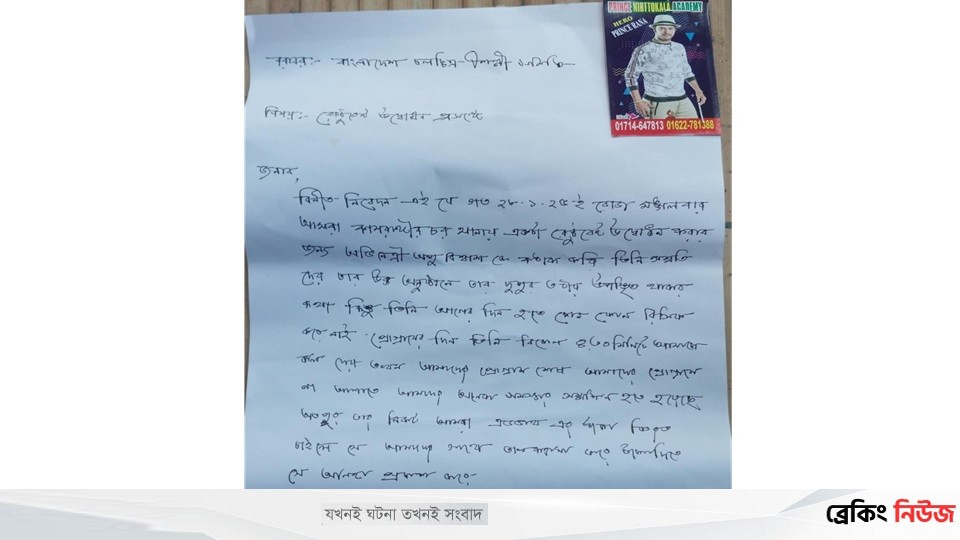 PRINCE NIRTTOKALA ACADEMY
HERO
PRINCE RANA
01714-647813 01622-781388
বরাবর:- বাংলাদেশ চলচ্চিত্র শিল্পী সমিতি
বিষয়:- রেষ্টুরেন্ট উদ্বোধন প্রসঙ্গে
জনাব,
বিনীত নিবেদন এই যে গত ২৮.১.২৫ ই রোজ মঙ্গলবার
আমরা কামরাঙ্গীর চর থানায় একটা রেষ্টুরেন্ট উদ্বোধন করার
জন্য অভিনেত্রী অপু বিশ্বাস কে কন্টাক্ট করি তিনি সম্মতি
দেন তার উক্ত অনুষ্ঠানে তার দুপুর ৩ টায় উপস্থিত থাকার
কথা কিন্তু তিনি আগের দিন হতে কোন ফোন রিসিভ
করে নাই প্রোগ্রামের দিন তিনি বিকেল ৪:৩০ মিনিটে আমাকে
কল দেয় তখন আমাদের প্রোগ্রাম শেষ আমাদের প্রোগ্রামে
না আসাতে আমাদের অনেক সমস্যার সম্মুখিন হতে হয়েছে
অতপর তার নিকট আমরা এডভান্স এর টাকা ফিরত
চাইলে সে আমাদের সাথে করে টাকা দিতে
সে প্রকাশ করে
যখনই ঘটনা তখনই সংবাদ
ব্রেকিং নিউজ